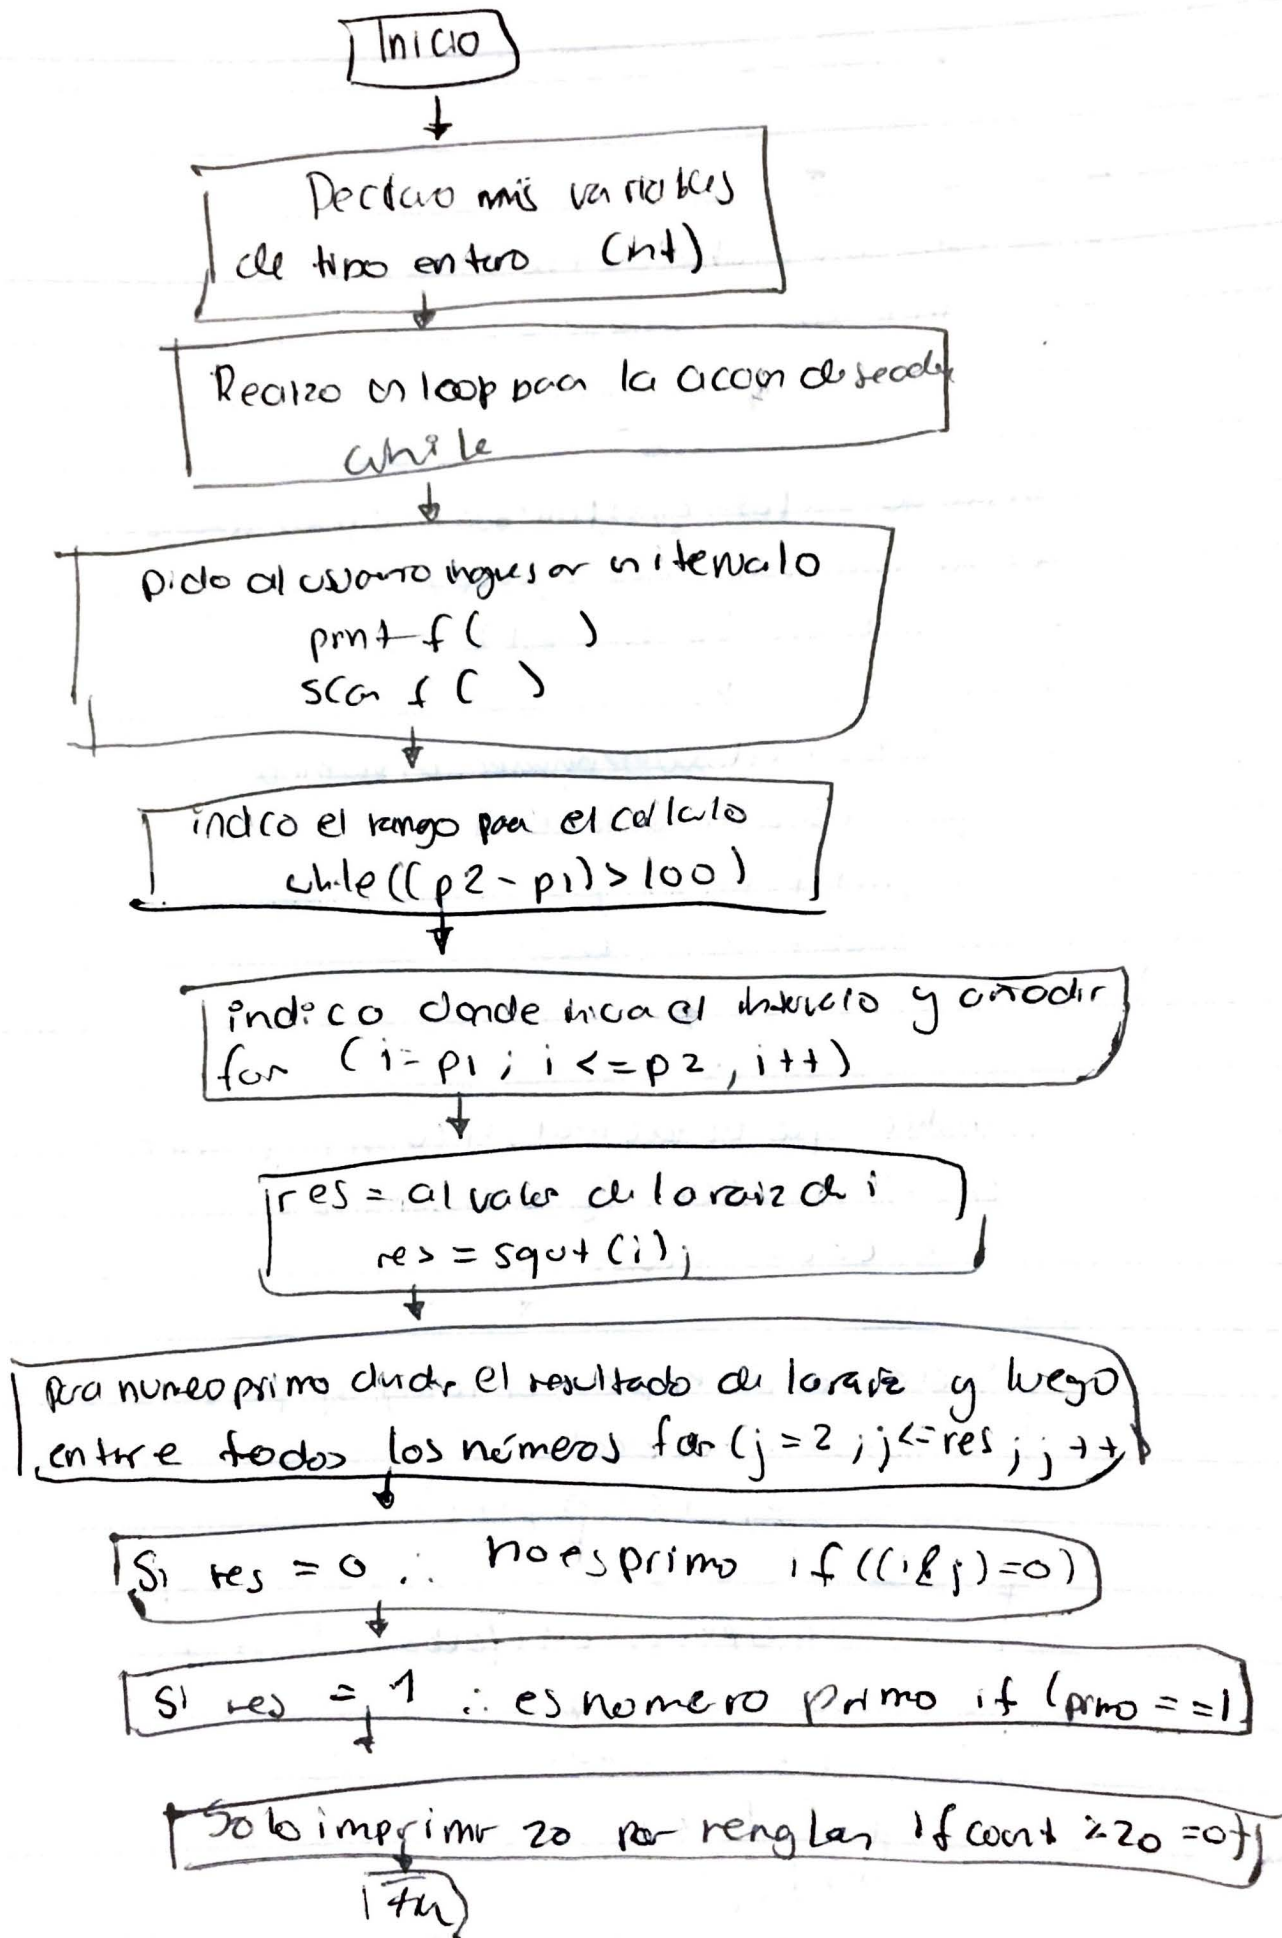 Inicio
Declaro mis variables
de tipo entero (int)
Realizo un loop para la accion deseada
while
pido al usuario ingresar un itervalo
printf( )
scanf( )
indico el rango para el calculo
while((p2-p1)>100)
indico donde inicia el intervalo y añadir
for (i=p1; i<=p2, i++)
res = al valor de la raiz de i
res = sqrt(i);
para numero primo dividir el resultado de la raiz y luego
entre todos los números for(j=2;j<=res;j++)
Si res = 0 ∴ no es primo if((i%j)=0)
Si res = 1 ∴ es numero primo if (primo==1)
Solo imprimir 20 por renglon if count %20 =0
Fin